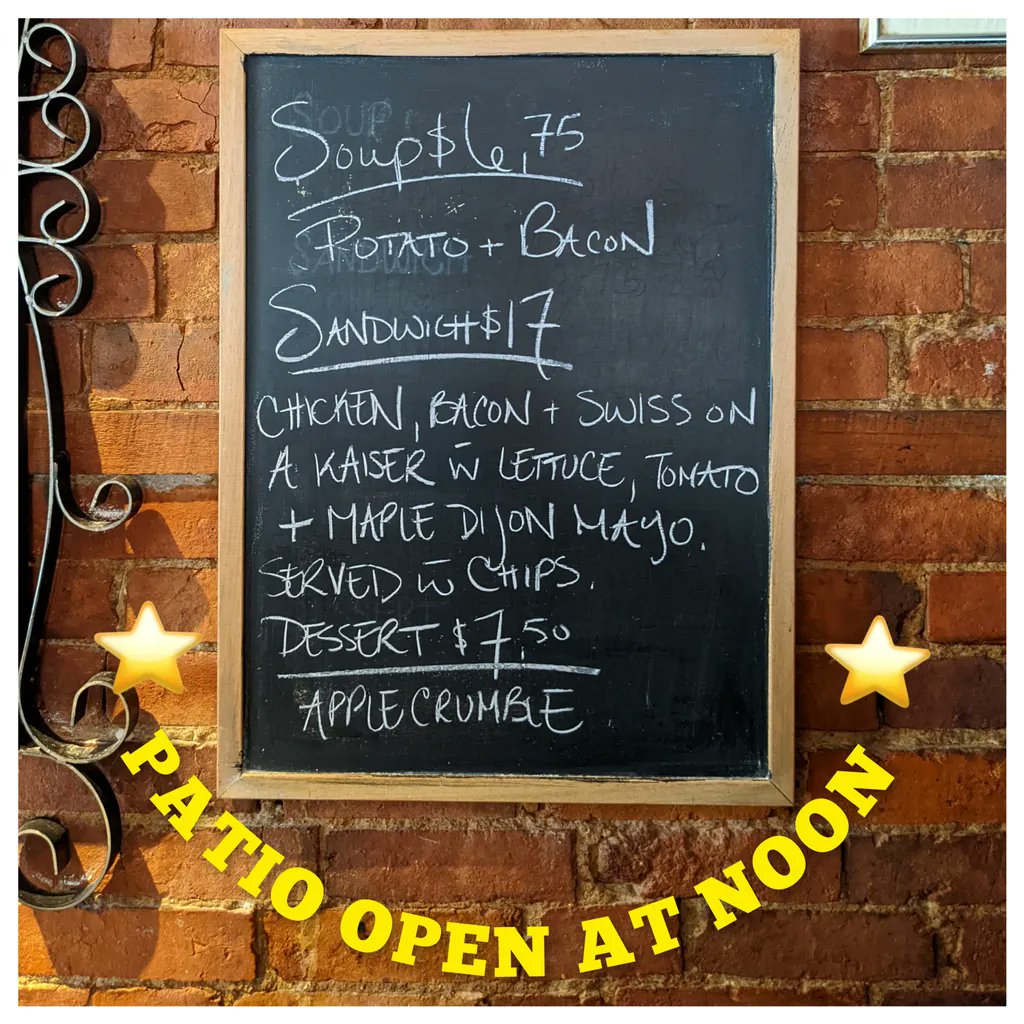 Soup $6.75
POTATO + BACON
SANDWICH $17
CHICKEN, BACON + SWISS ON
A KAISER w̄ LETTUCE, TOMATO
+ MAPLE DIJON MAYO.
SERVED w̄ CHIPS.
DESSERT $7.50
APPLE CRUMBLE
PATIO OPEN AT NOON